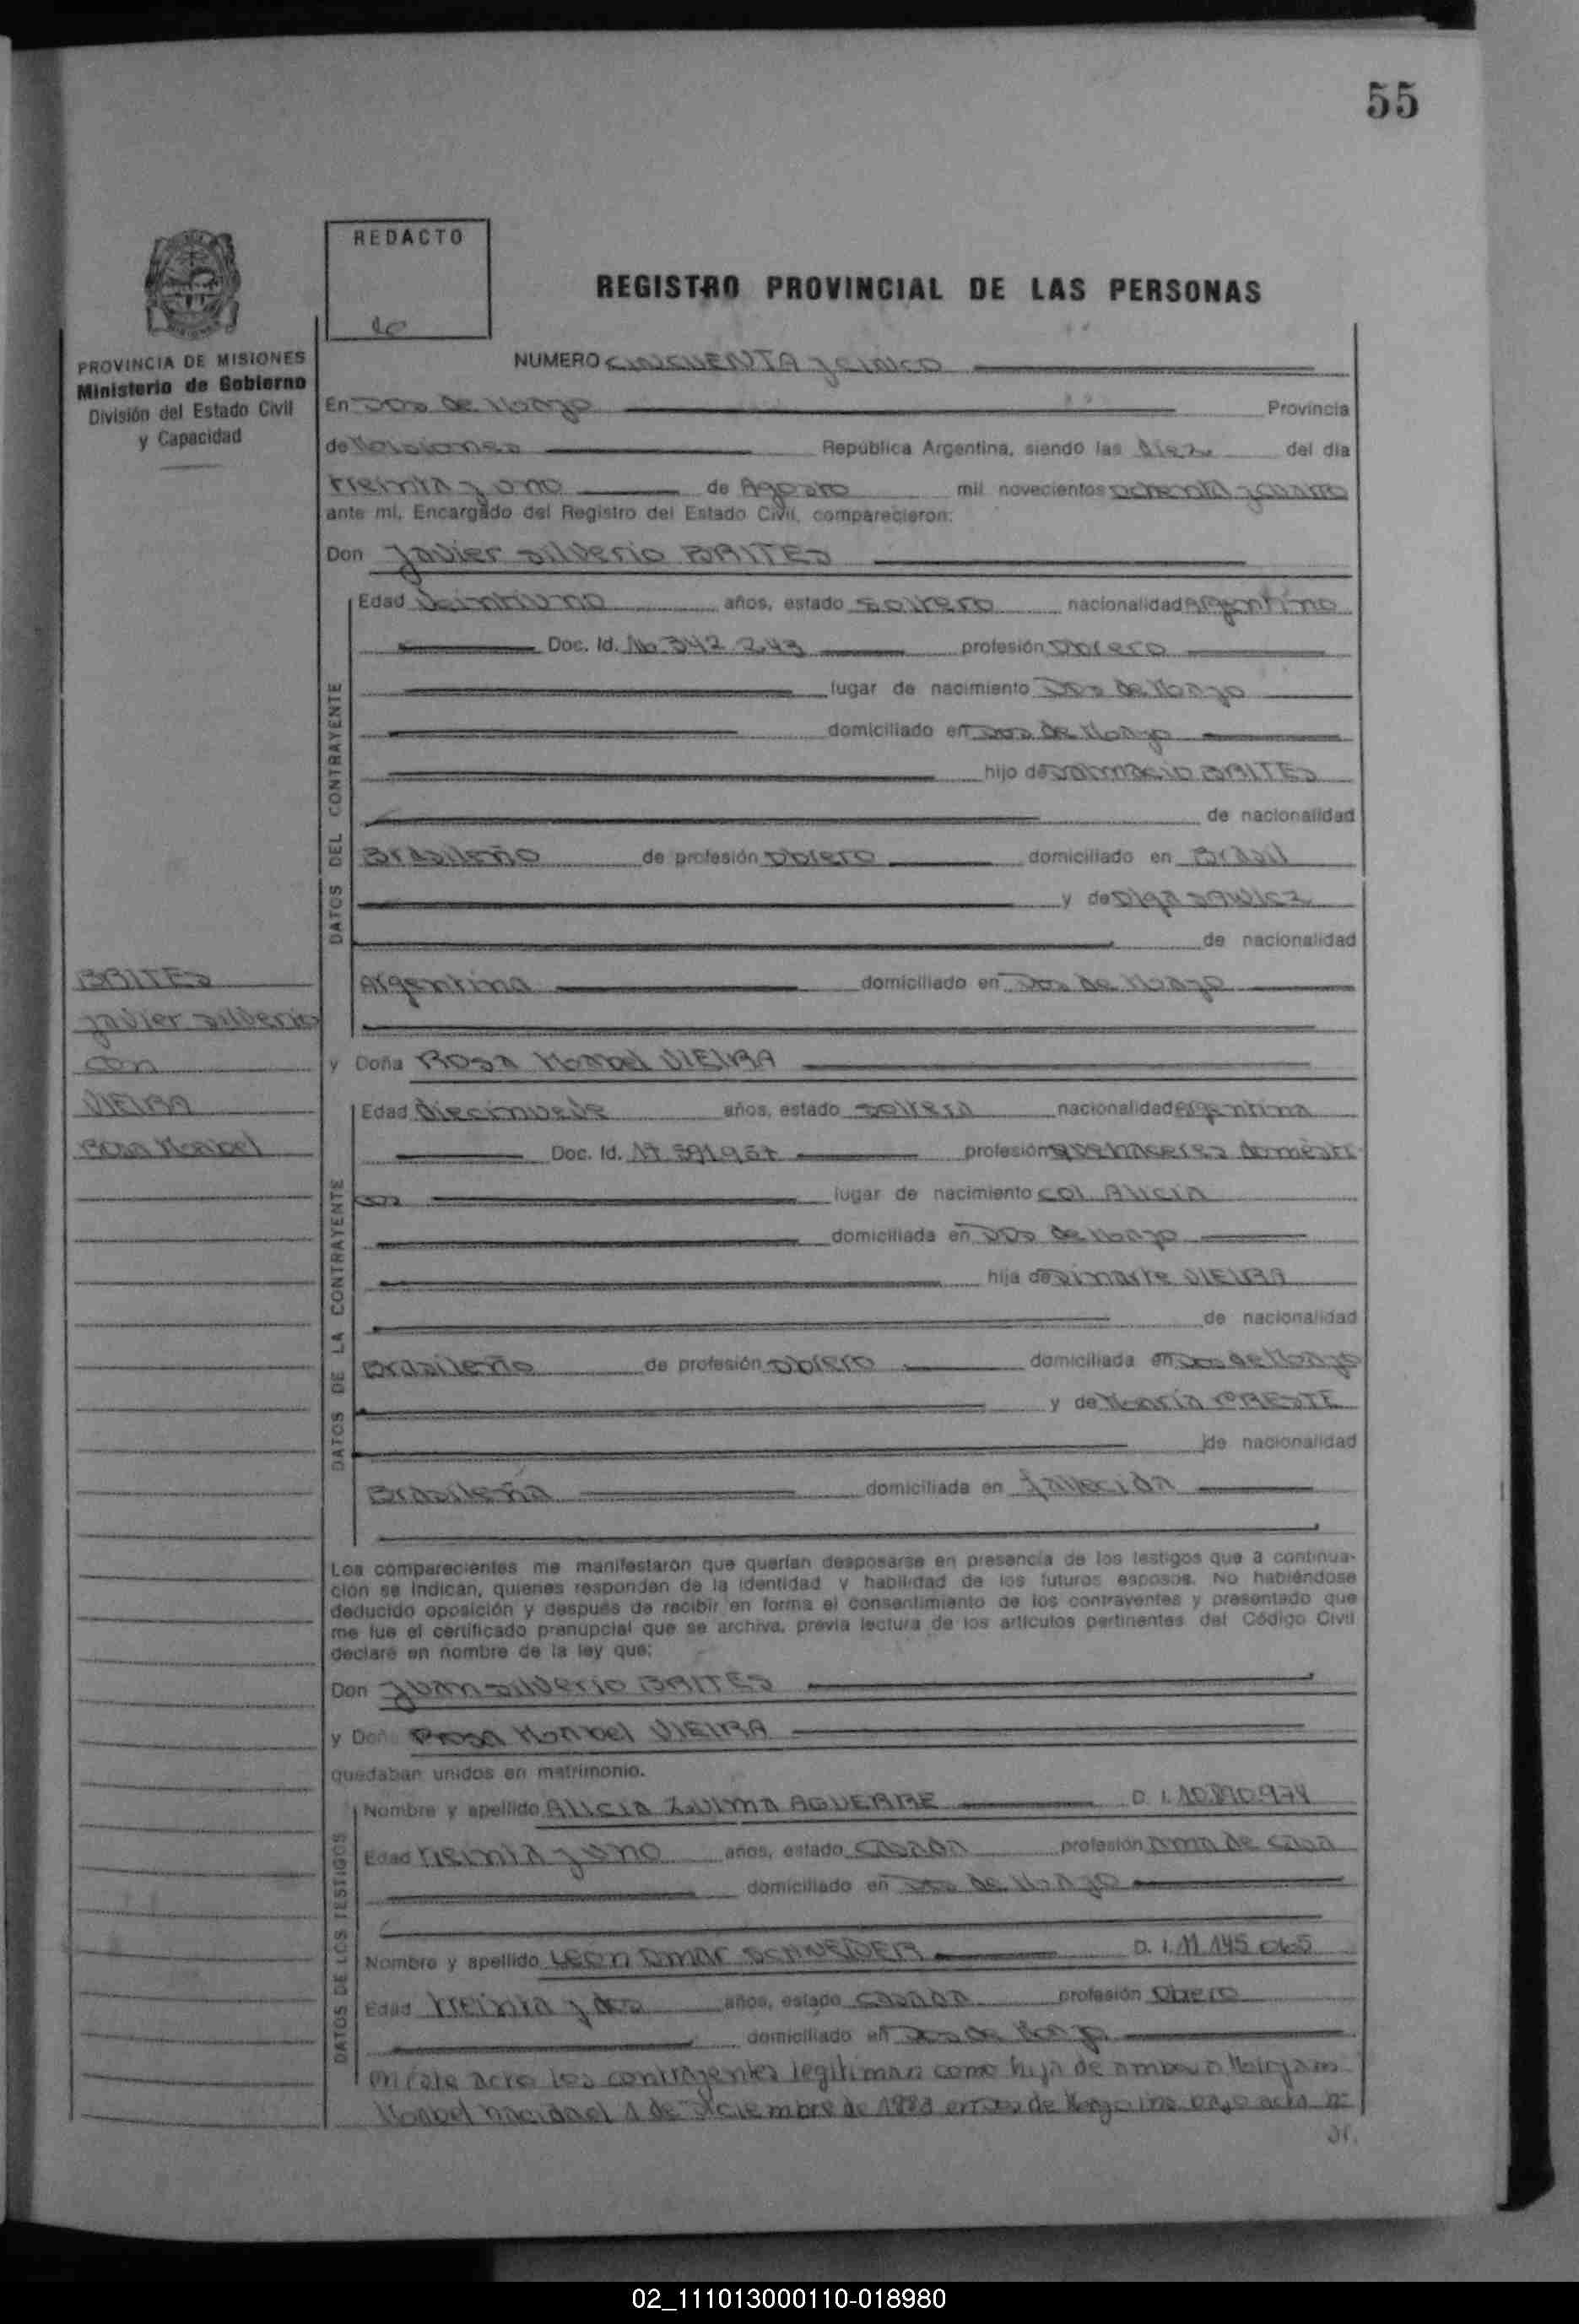 55
REDACTO
REGISTRO PROVINCIAL DE LAS PERSONAS
PROVINCIA DE MISIONES
Ministerio de Gobierno
División del Estado Civil
y Capacidad
NUMERO CINCUENTA y CINCO
En Dos de Mayo Provincia
de Misiones República Argentina, siendo las diez del día
treinta y uno de Agosto mil novecientos ochenta y cuatro
ante mí, Encargado del Registro del Estado Civil, comparecieron:
Don Javier Silverio BRITES
DATOS DEL CONTRAYENTE
Edad Veintiuno años, estado soltero nacionalidad Argentino
Doc. Id. No 342.243 profesión Obrero
lugar de nacimiento Dos de Mayo
domiciliado en Dos de Mayo
hijo de BRITES
de nacionalidad
Brasileño de profesión Obrero domiciliado en Brasil
y de Olga SAWICZ
de nacionalidad
Argentina domiciliado en Dos de Mayo
BRITES
Javier Silverio
con
VIEIRA
Rosa Mabel
y Doña Rosa Mabel VIEIRA
DATOS DE LA CONTRAYENTE
Edad Diecinueve años, estado soltera nacionalidad Argentina
Doc. Id. 17.591.957 profesión quehaceres domésti-
cos lugar de nacimiento Col. Alicia
domiciliada en Dos de Mayo
hija de Dinarte VIEIRA
de nacionalidad
Brasileño de profesión Obrero domiciliada en Dos de Mayo
y de María PRESTE
de nacionalidad
Brasileña domiciliada en fallecida
Los comparecientes me manifestaron que querían desposarse en presencia de los testigos que a continua-
ción se indican, quienes responden de la identidad y habilidad de los futuros esposos. No habiéndose
deducido oposición y después de recibir en forma el consentimiento de los contrayentes y presentado que
me fue el certificado prenupcial que se archiva, previa lectura de los artículos pertinentes del Código Civil
declaré en nombre de la ley que:
Don Juan Silverio BRITES
y Doña Rosa Mabel VIEIRA
quedaban unidos en matrimonio.
DATOS DE LOS TESTIGOS
Nombre y apellido Alicia Zulma AGUERRE D. I. 10.890.974
Edad treinta y uno años, estado casada profesión ama de casa
domiciliado en Dos de Mayo
Nombre y apellido León Omar SCHNEIDER D. I. 11.145.065
Edad treinta y dos años, estado casado profesión Obrero
domiciliado en Dos de Mayo
En este acto los contrayentes legitiman como hija de ambos a
Mabel nacida el 1 de Diciembre de 1983 en Dos de Mayo bajo acta nº
02_111013000110-018980